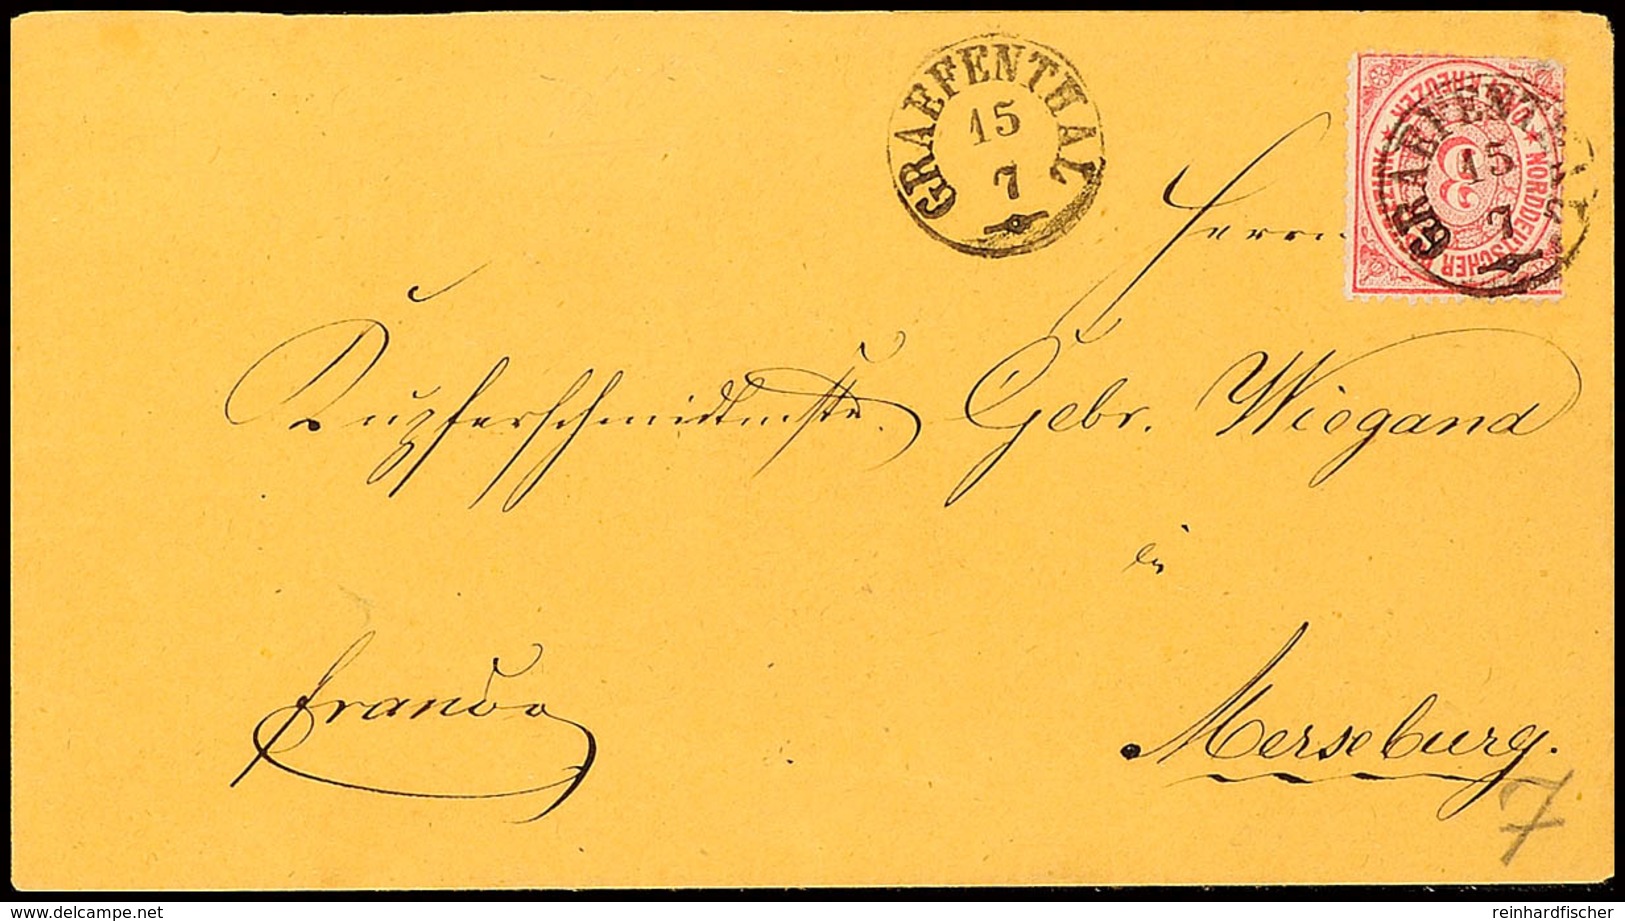 GRAEFENTHAL
15
7
GRAEFENTHAL
15
7
NORDDEUTSCHER POSTBEZIRK
KREUZER
3
Herrn
Kupferschmidtmstr. Gebr. Wiegand
in
Merseburg.
franco
7
delcampe.net
reinhardfischer